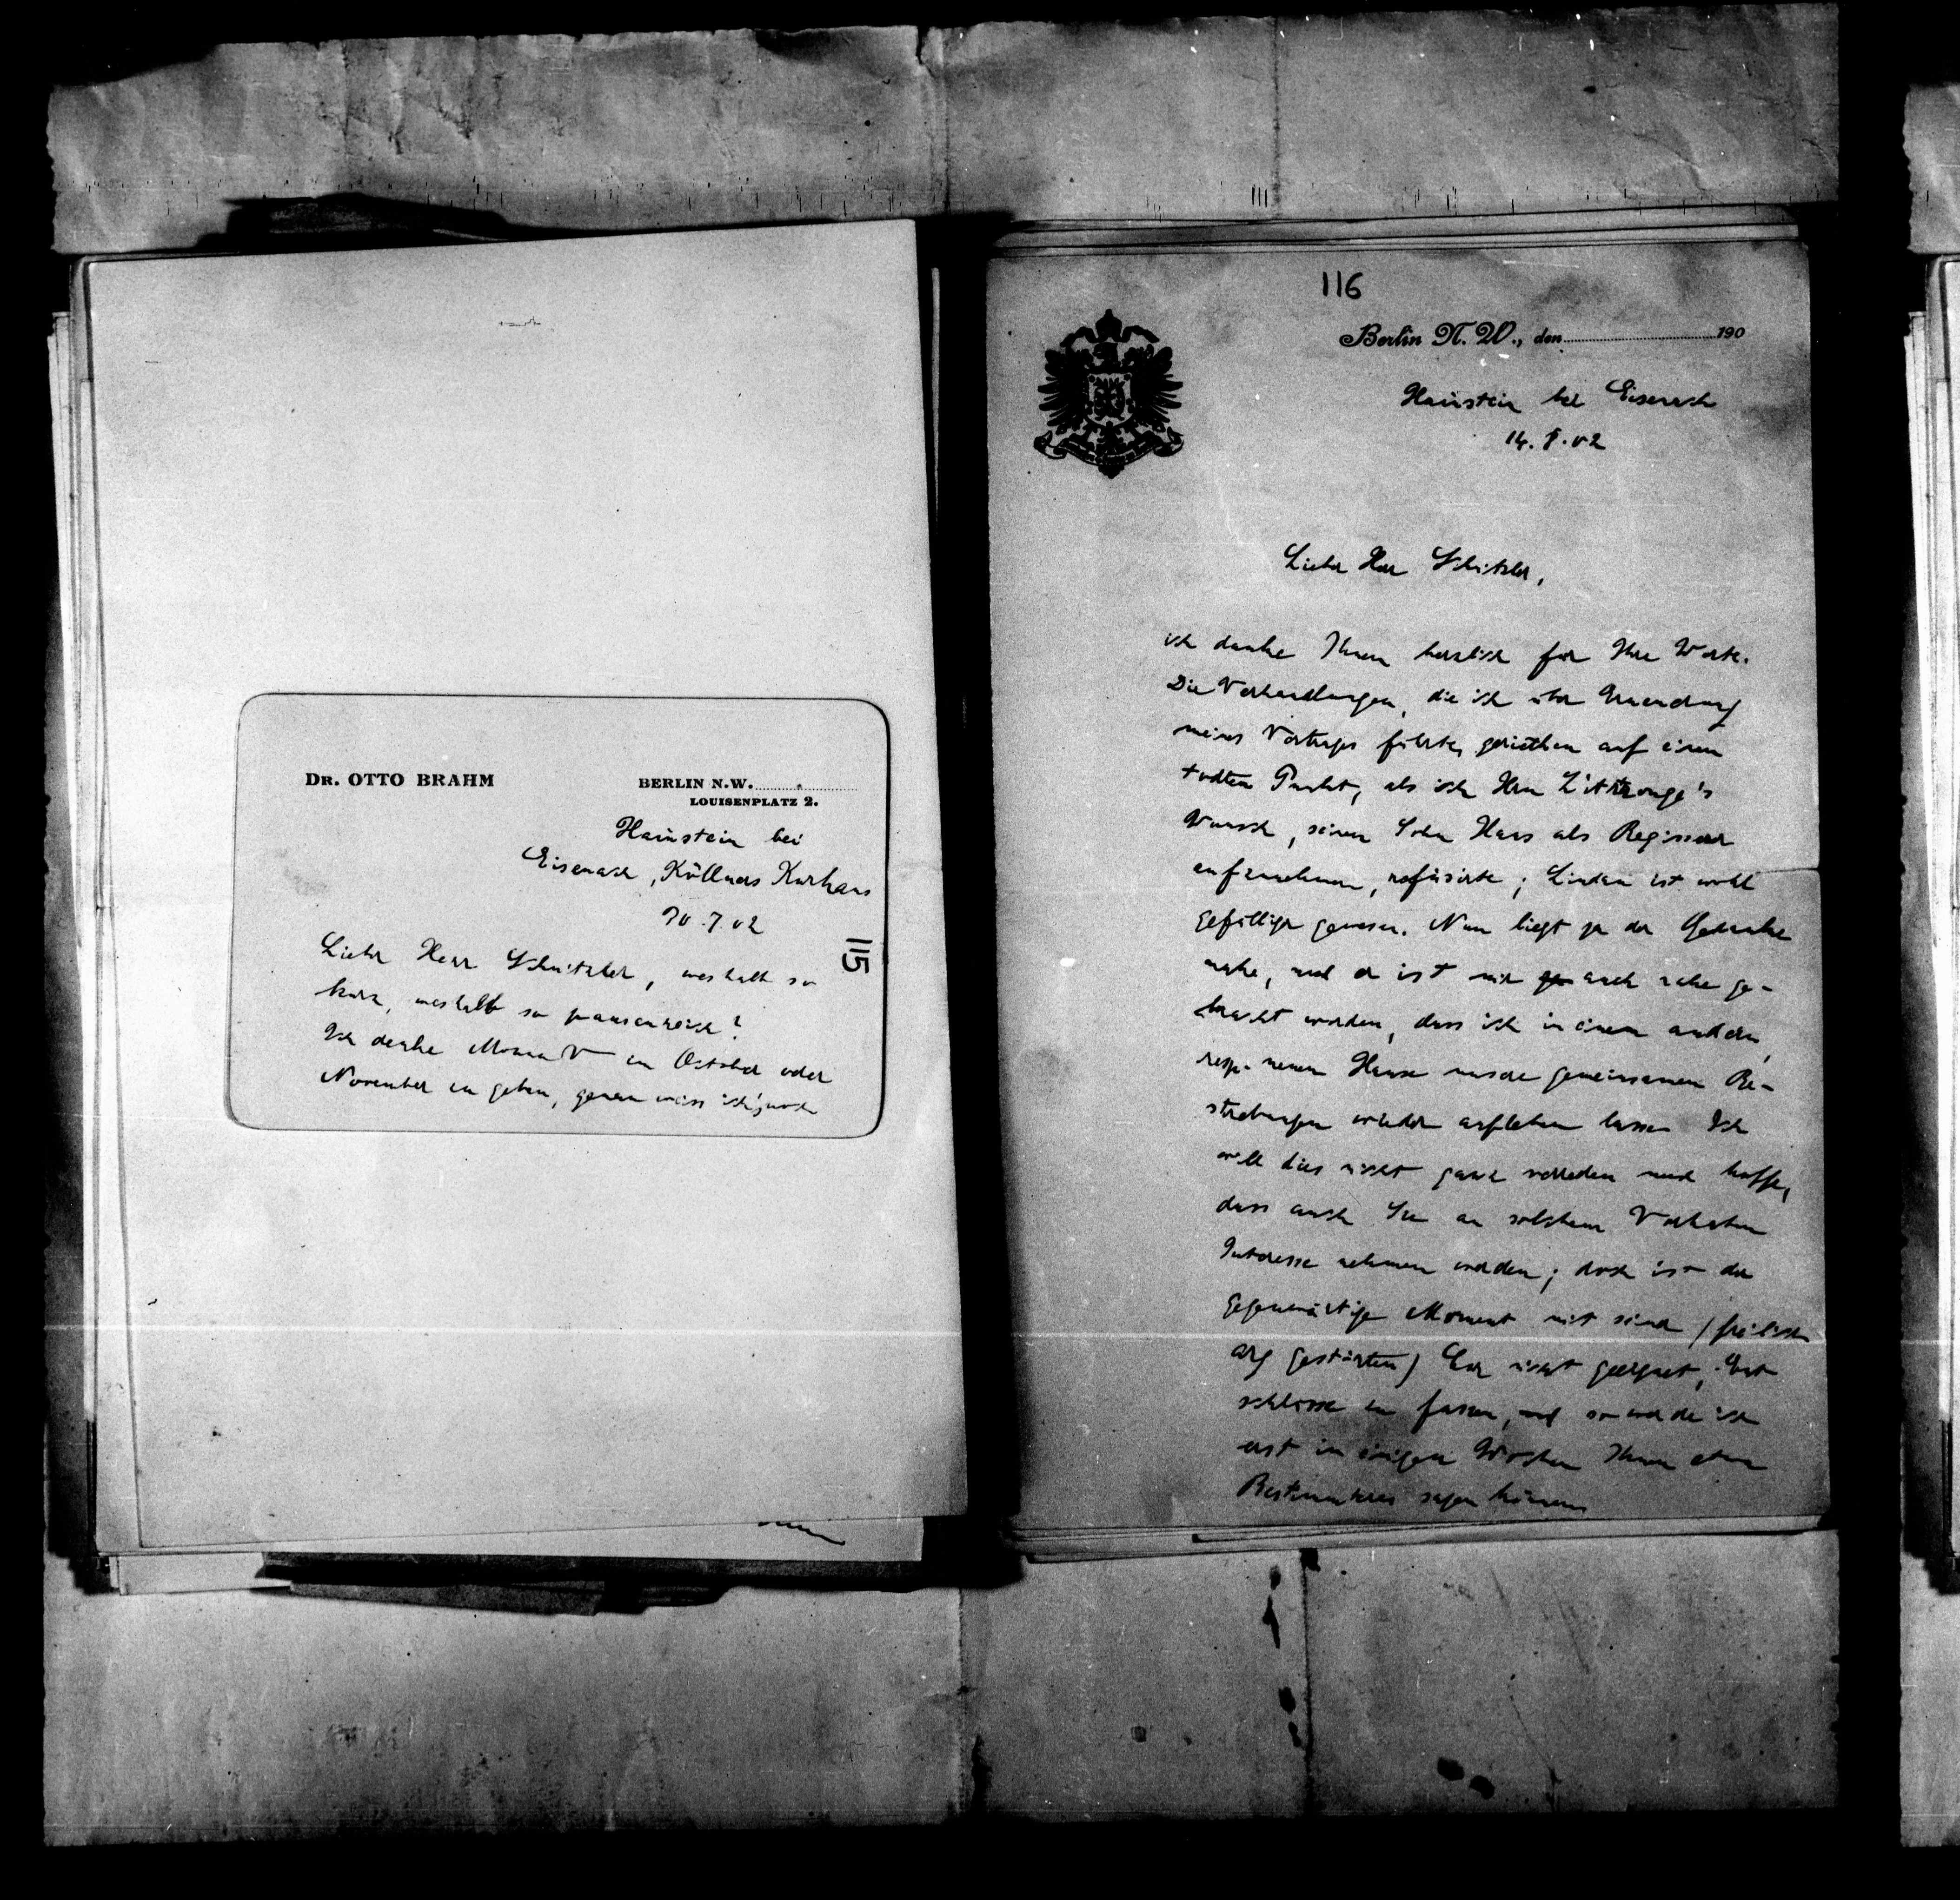 DR. OTTO BRAHM
BERLIN N.W.
LOUISENPLATZ 2.
Hainstein bei
Eisenach, Köllners Kurhaus
30.7.02
115
Lieber Herr Schnitzler, weshalb so
kurz, weshalb so pausenreich?
Ich denke Monna V im October oder
November zu geben, genau weiss ich's noch
116
Berlin N. W., den 190
Hainstein bei Eisenach
14. 8. 02
Lieber Herr Schnitzler,
ich danke Ihnen herzlich für Ihre Worte.
Die Verhandlungen, die ich über Erneuerung
meines Vertrages führte, geriethen auf einen
todten Punkt, als ich Herrn L'Arronge's
Wunsch, seinen Sohn Hans als Regisseur
aufzunehmen, refüsirte; Lindau ist wohl
gefälliger gewesen. Nun liegt ja der Gedanke
nahe, und er ist mir auch nahe ge-
bracht worden, dass ich in einem anderen,
resp. neuen Hause unsere gemeinsamen Be-
strebungen wieder aufleben lasse. Ich
will dies nicht ganz verreden und hoffe,
dass auch Sie an solchem Vorhaben
Interesse nehmen werden; doch ist der
gegenwärtige Moment mit seiner (freilich
arg gestörten) Cur nicht geeignet, Ent
schlüsse zu fassen, und so werde ich
erst in einigen Wochen Ihnen etwas
Bestimmteres sagen können